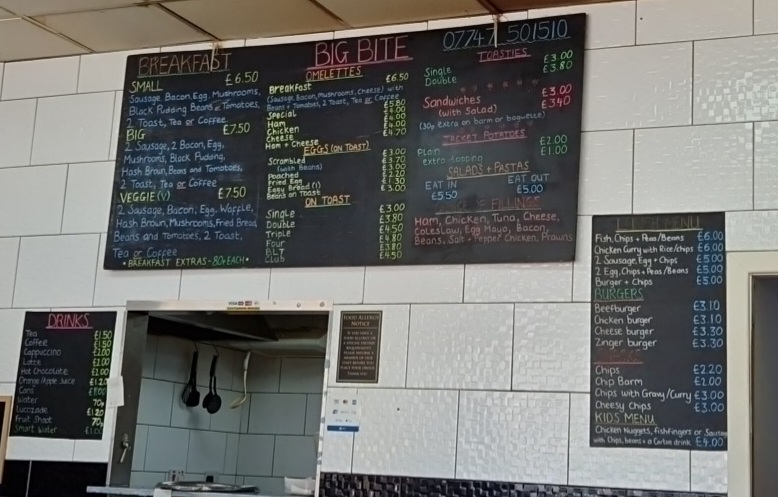 BREAKFAST
SMALL £6.50
Sausage, Bacon, Egg, Mushrooms,
Black Pudding Beans or Tomatoes,
2 Toast, Tea or Coffee
BIG £7.50
2 Sausage, 2 Bacon, Egg,
Mushrooms, Black Pudding,
Hash Brown, Beans and Tomatoes,
2 Toast, Tea or Coffee
VEGGIE (V) £7.50
2 Sausage, Bacon, Egg, Waffle,
Hash Brown, Mushrooms, Fried Bread
Beans and Tomatoes, 2 Toast,
Tea or Coffee
*BREAKFAST EXTRAS - 80p EACH*
BIG BITE
OMELETTES
Breakfast £6.50
(Sausage, Bacon, Mushrooms, Cheese) with
Beans + Tomatoes, 2 Toast, Tea or Coffee
Special £5.80
Ham £4.00
Chicken £4.00
Cheese £4.00
Ham + Cheese £4.70
EGGS (ON TOAST)
Scrambled £3.00
(with Beans) £3.70
Poached £3.00
Fried Egg
Eggy Bread (1) £1.30
Beans on Toast £3.00
ON TOAST
Single £3.00
Double £3.80
Triple £4.50
Four £4.80
BLT £3.80
Club £4.50
07747 501510
TOASTIES
Single £3.00
Double £3.80
Sandwiches £3.00
(with Salad) £3.40
(30p extra on barm or baguette)
JACKET POTATOES
Plain £2.00
extra topping £1.00
SALADS + PASTAS
EAT IN EAT OUT
£5.50 £5.00
FILLINGS
Ham, Chicken, Tuna, Cheese,
Coleslaw, Egg Mayo, Bacon,
Beans, Salt + Pepper Chicken, Prawns
MENU
Fish, Chips + Peas/Beans £6.00
Chicken Curry with Rice/chips £6.00
2 Sausage, Egg + Chips £5.00
2 Egg, Chips + Peas/Beans £5.00
Burger + Chips £5.00
BURGERS
Beefburger £3.10
Chicken burger £3.10
Cheese burger £3.30
Zinger burger £3.30
Chips £2.20
Chip Barm £2.00
Chips with Gravy/Curry £3.00
Cheesy Chips £3.00
KIDS MENU
Chicken Nuggets, fishfingers or Sausage
with Chips, beans + a Carton drink £4.00
DRINKS
Tea £1.50
Coffee £1.50
Cappuccino £2.00
Latte £2.00
Hot Chocolate £2.00
Orange/Apple Juice £1.20
Cans
Water 70p
Lucozade £1.20
Fruit Shoot 70p
Smart Water
FOOD ALLERGY
NOTICE